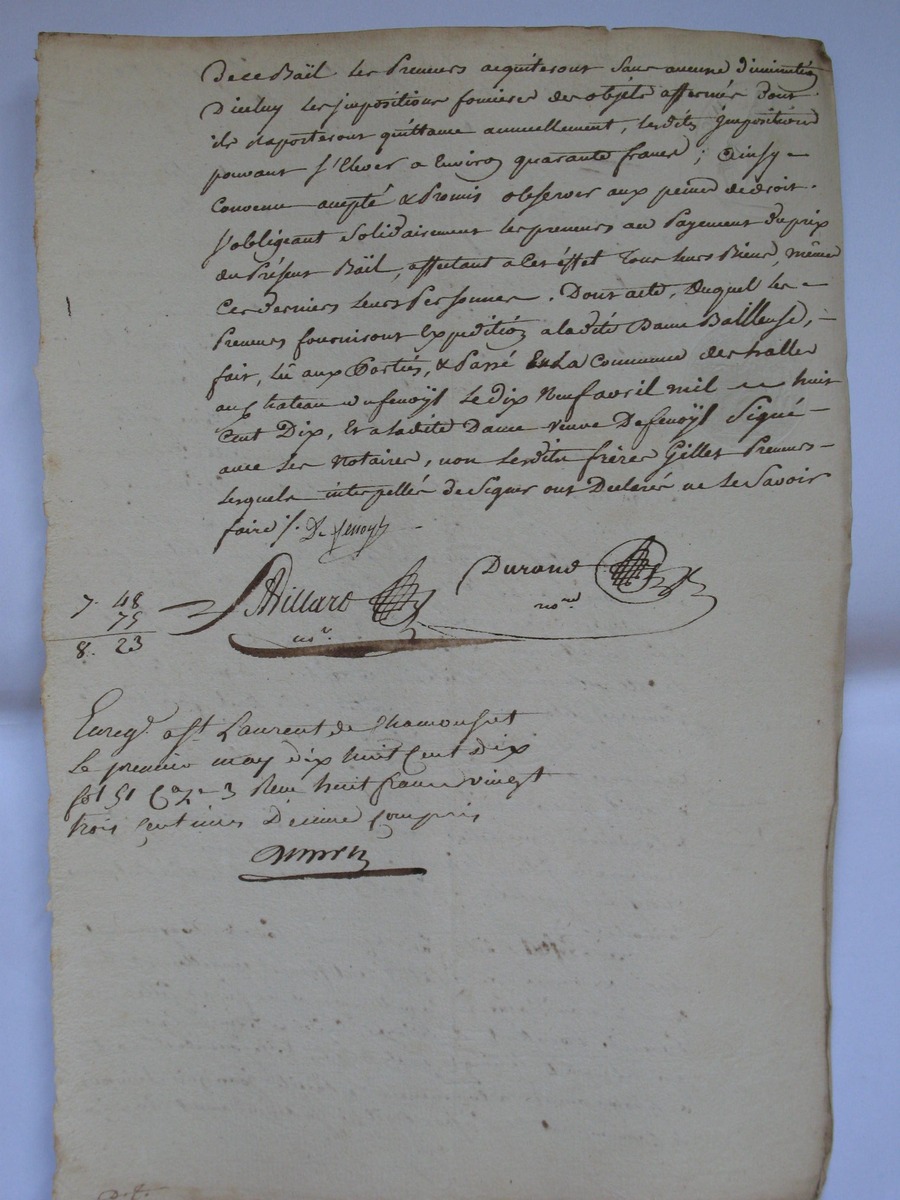 De ce Bail. Les Preneurs acquiteront sans aucune diminution
D'iceluy les jmpositions foncieres des objets affermés dont
ils raporteront quittance annuellement, lesdits jmpositions
pouvant s'Elever a Environ quarante francs; Ainsy -
Convenu accepté & Promis observer aux peines de droit.
s'obligeant solidairement les preneurs au Payement du prix
du Présent Bail, affectant a Cet éffet Tous leurs Biens, même
Ces derniers leurs Personnes. Dont acte, Duquel les -
Preneurs fourniront Expedition a ladite Dame Bailleuse, -
fait, lû aux Parties, & Passé En La Commune des halles
au Chateau du fenoÿl Le dix Neuf avril mil huit
Cent Dix, Et a ladite Dame veuve De fenoÿl Signé -
avec Les Notaires, non lesdits frères Gillet Preneurs -
Lesquels interpellés de Signer ont Déclarés ne le Savoir
faire ./. De fenoyl
Durand
nore
Billard
nore
7. 48
75
8. 23
Enregé a St Laurent de Chamousset
Le premier may dix huit Cent dix
fol 51 Ce 3 Reçu huit francs vingt
trois centimes Décime Compris